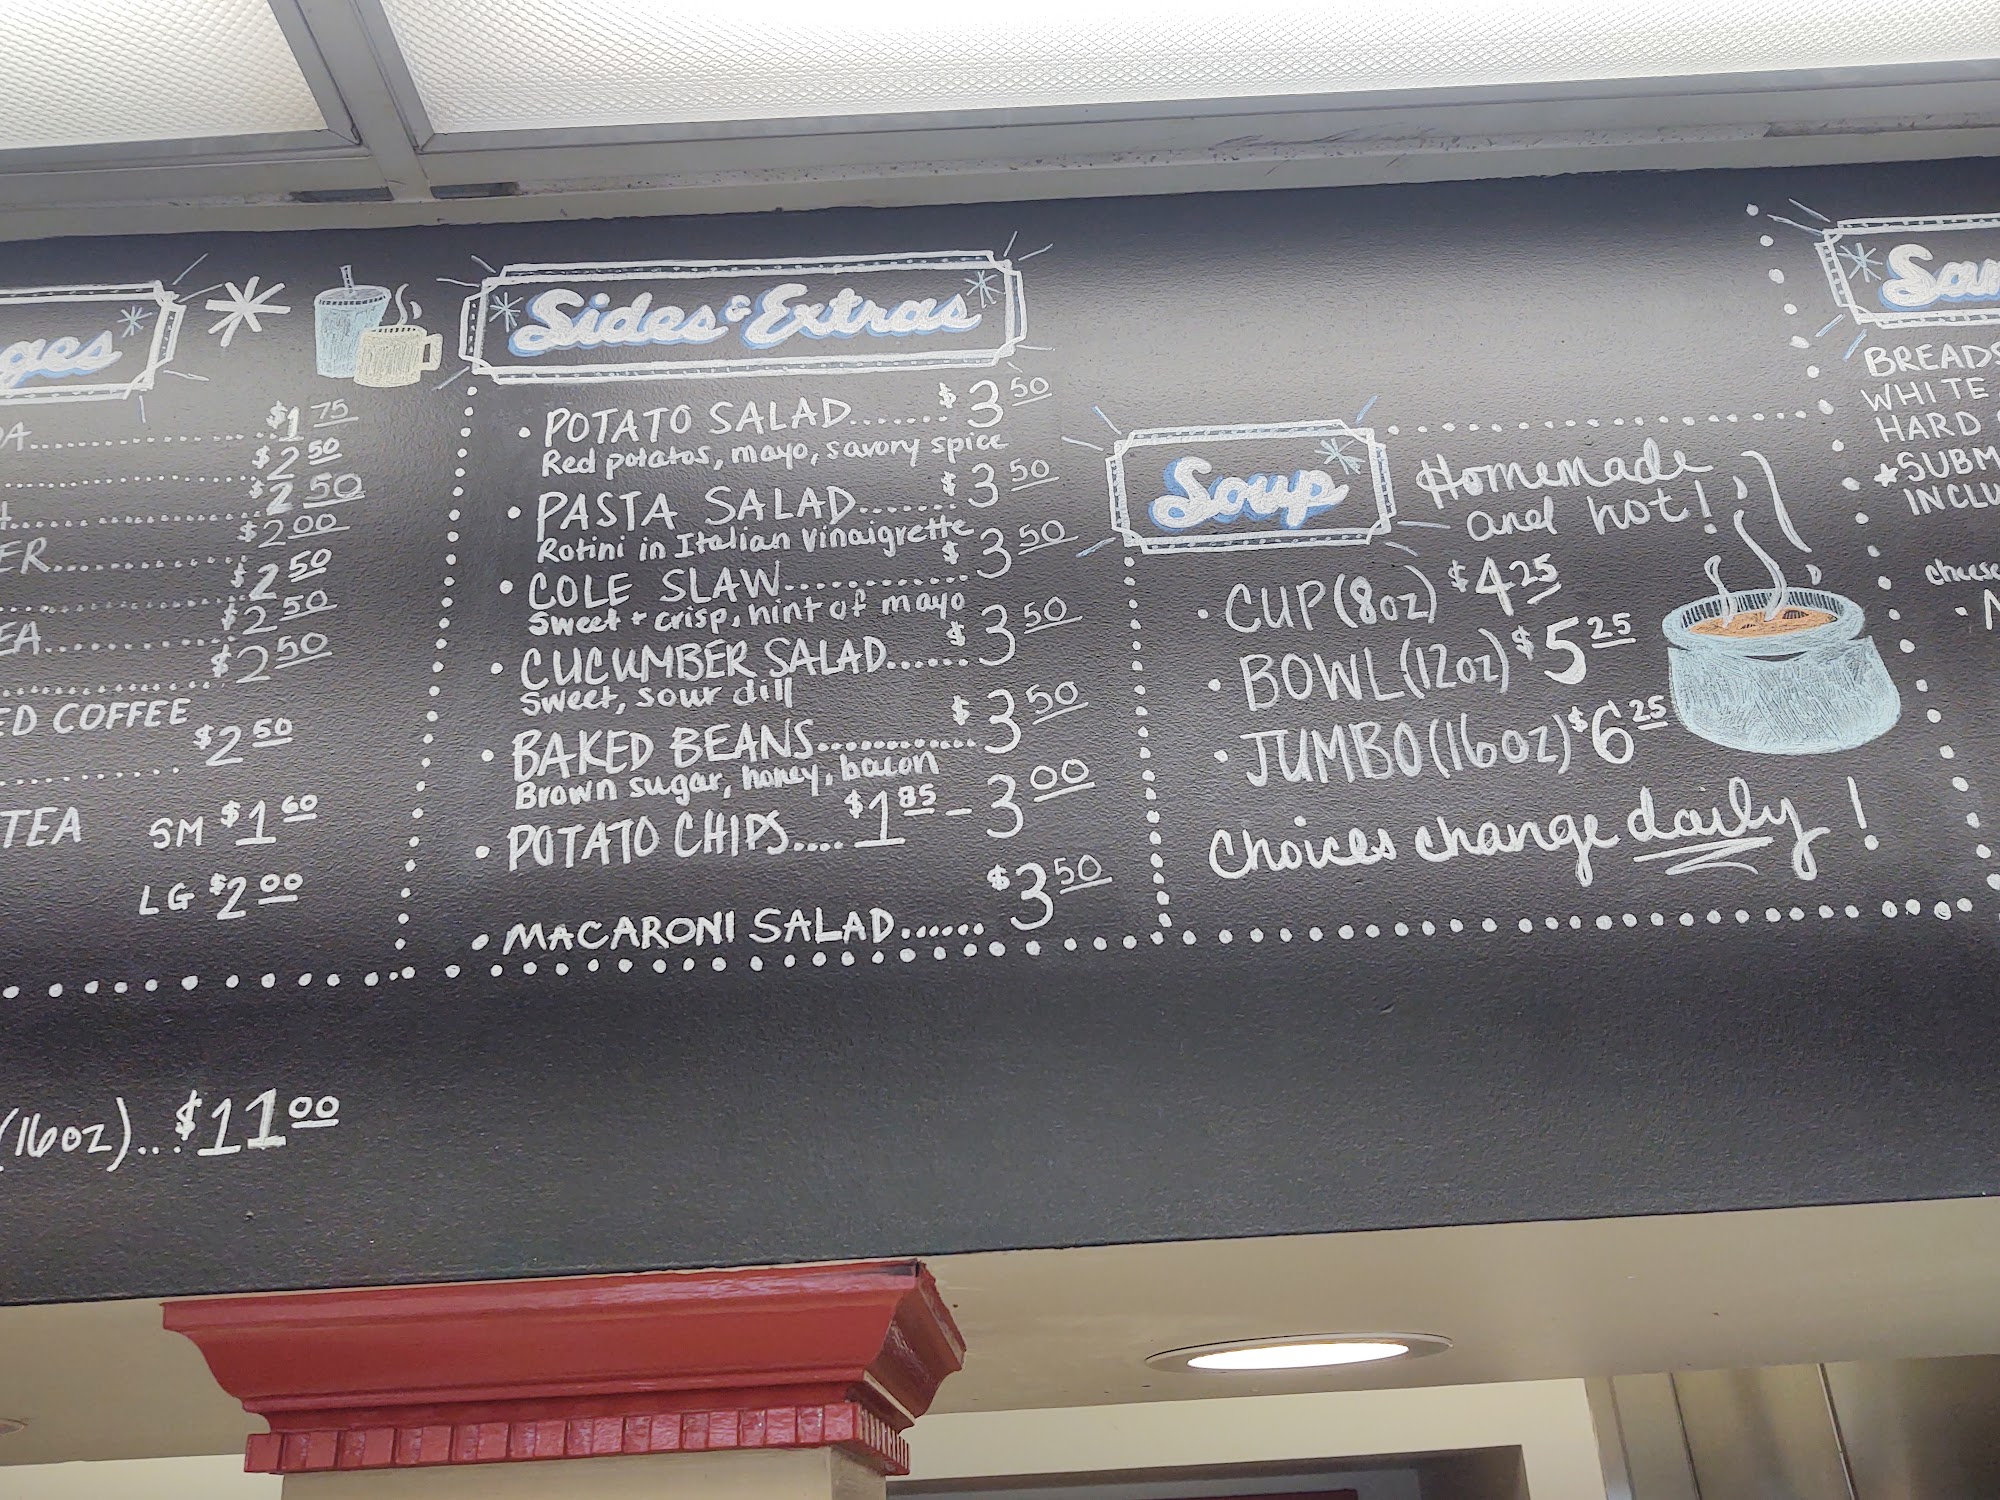 $1.75
$2.50
$2.50
$2.00
$2.50
$2.50
$2.50
COFFEE
$2.50
TEA SM $1.60
LG $2.00
(16oz)...$11.00
Sides & Extras
• POTATO SALAD.......$3.50
Red potatos, mayo, savory spice
• PASTA SALAD.......$3.50
Rotini in Italian Vinaigrette
• COLE SLAW............$3.50
Sweet + crisp, hint of mayo
• CUCUMBER SALAD......$3.50
Sweet, sour dill
• BAKED BEANS............$3.50
Brown sugar, honey, bacon
• POTATO CHIPS....$1.85 - 3.00
• MACARONI SALAD......$3.50
Soup
Homemade
and hot!
• CUP (8oz) $4.25
• BOWL (12oz) $5.25
• JUMBO (16oz) $6.25
Choices change daily!
BREADS
WHITE
HARD